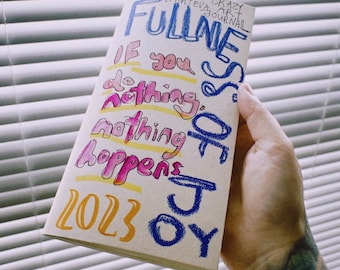 JOURNAL
FULLNESS OF JOY
If you
do
nothing,
nothing
happens
2023